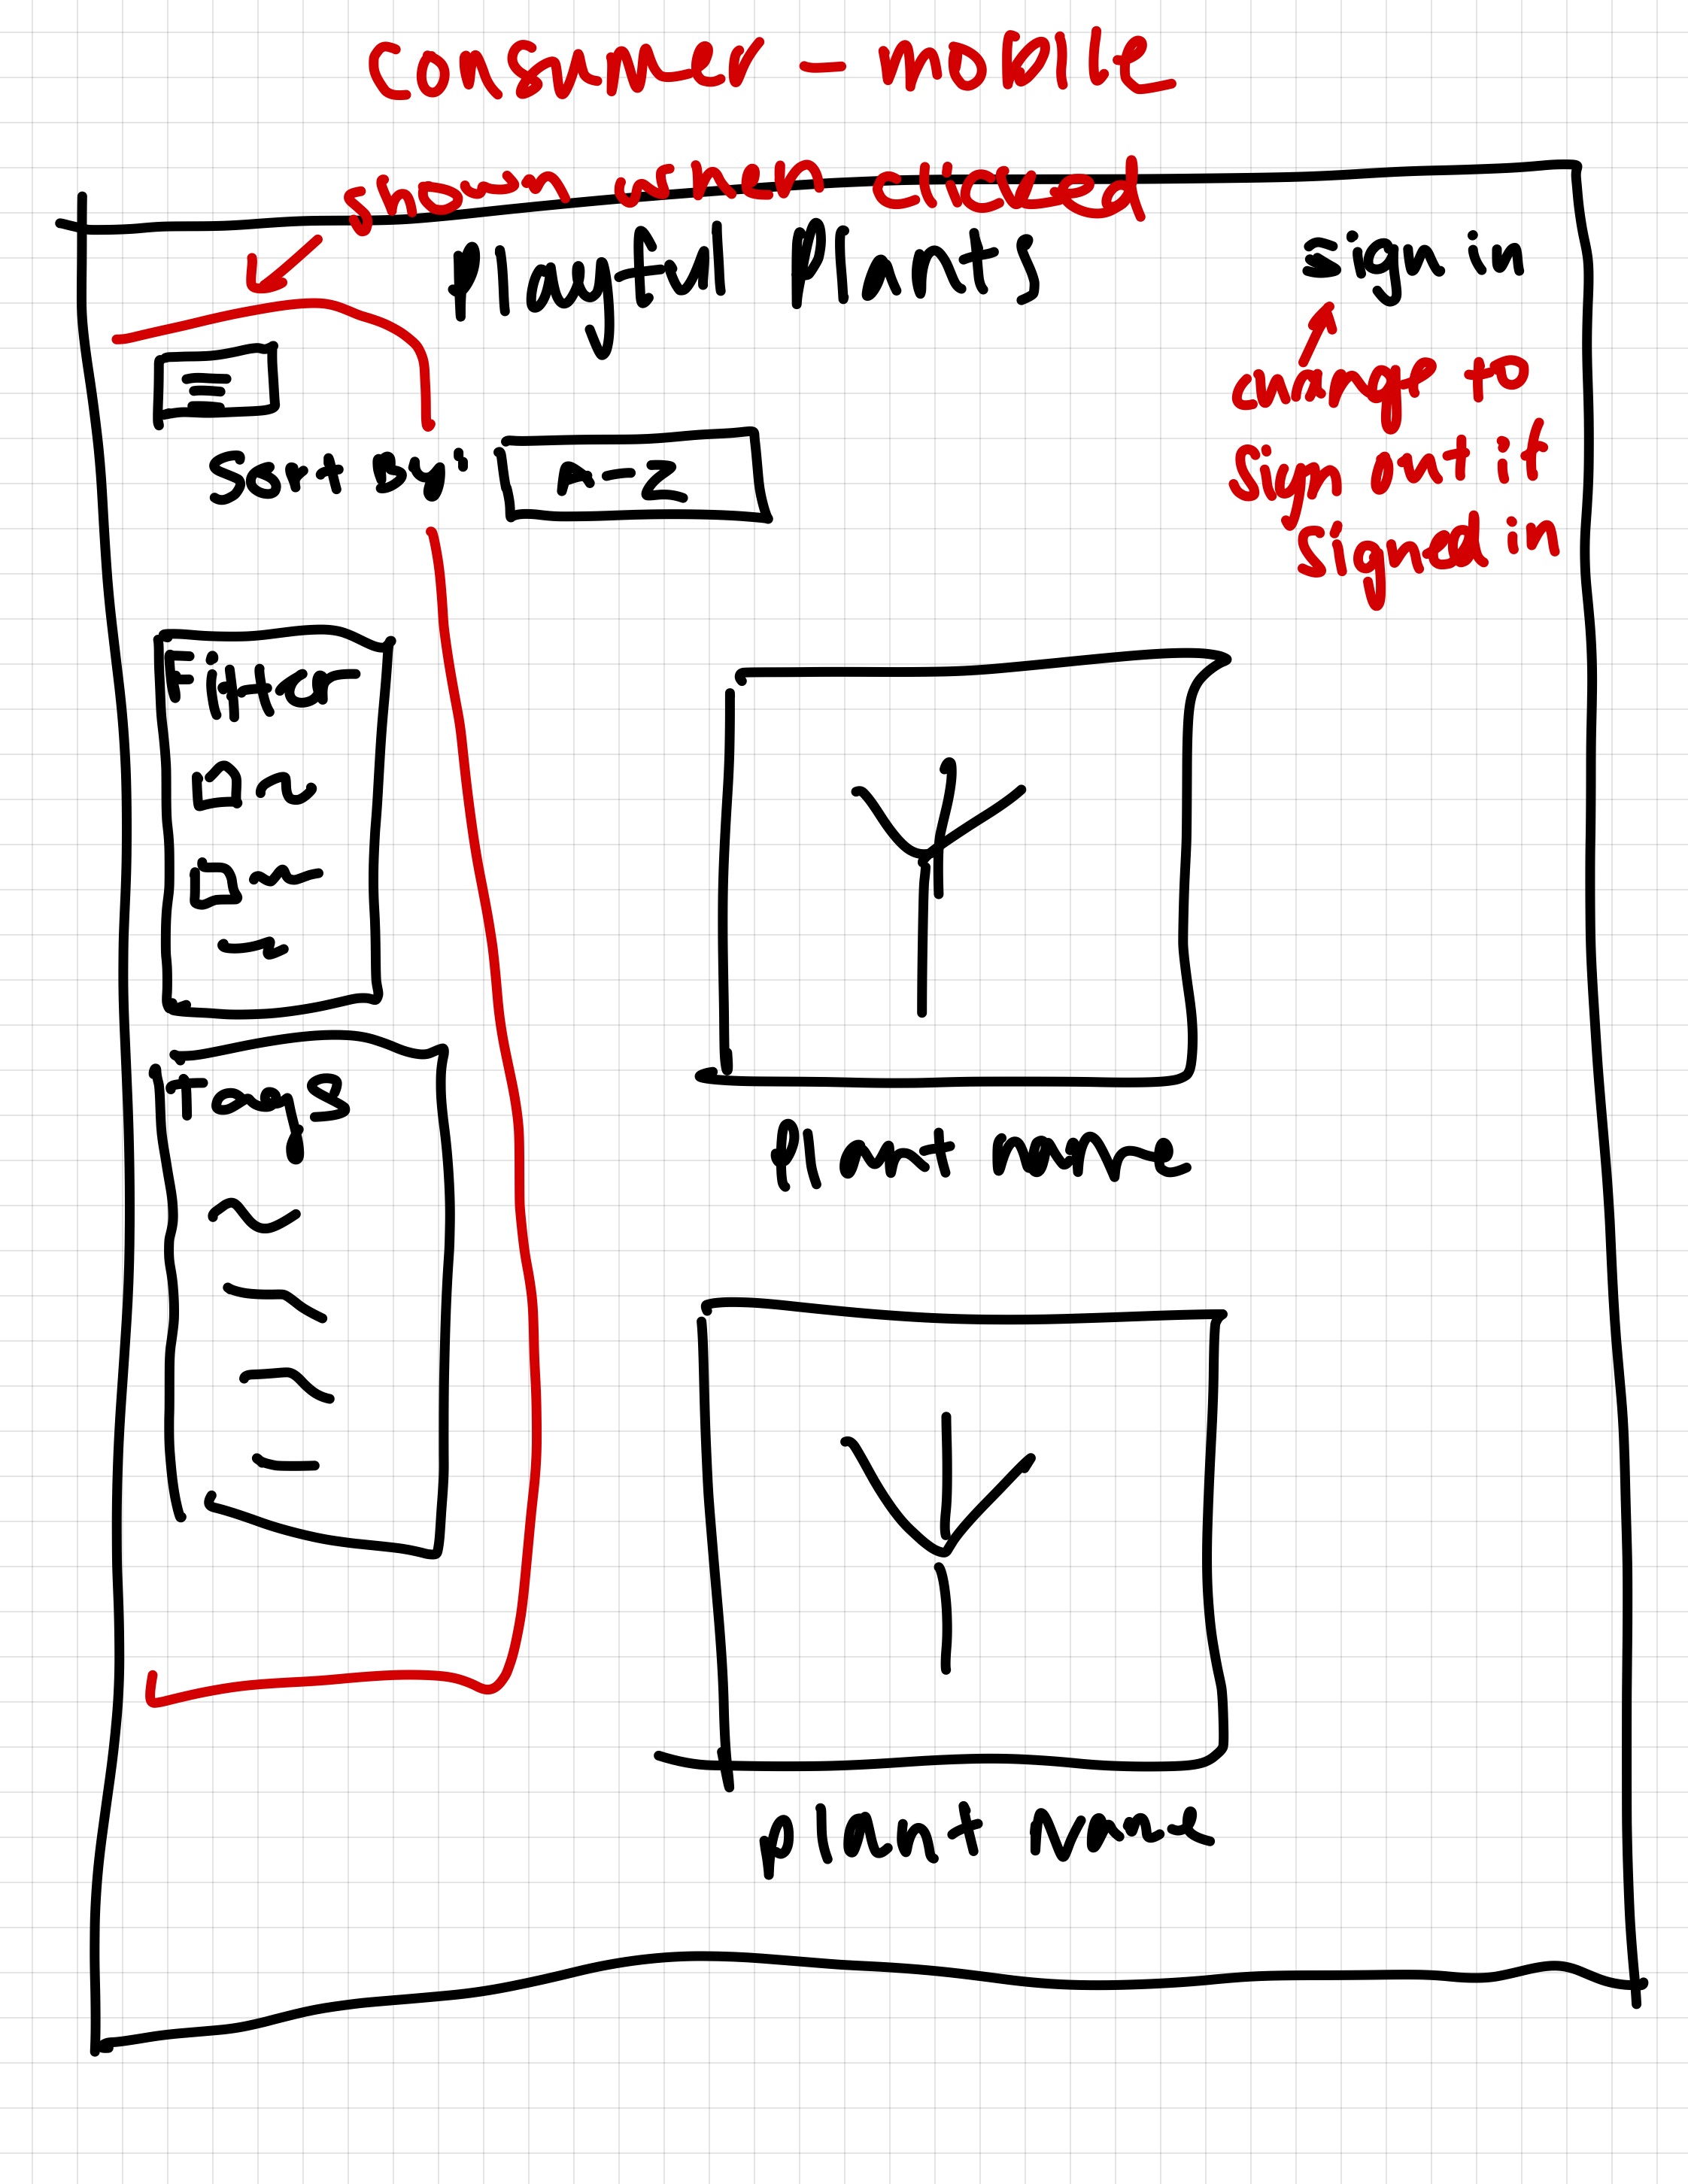 Consumer - mobile
shown when clicked
Playful Plants
Sign in
change to
sign out if
signed in
Sort by:
A-Z
Filter
Tags
Plant name
plant name